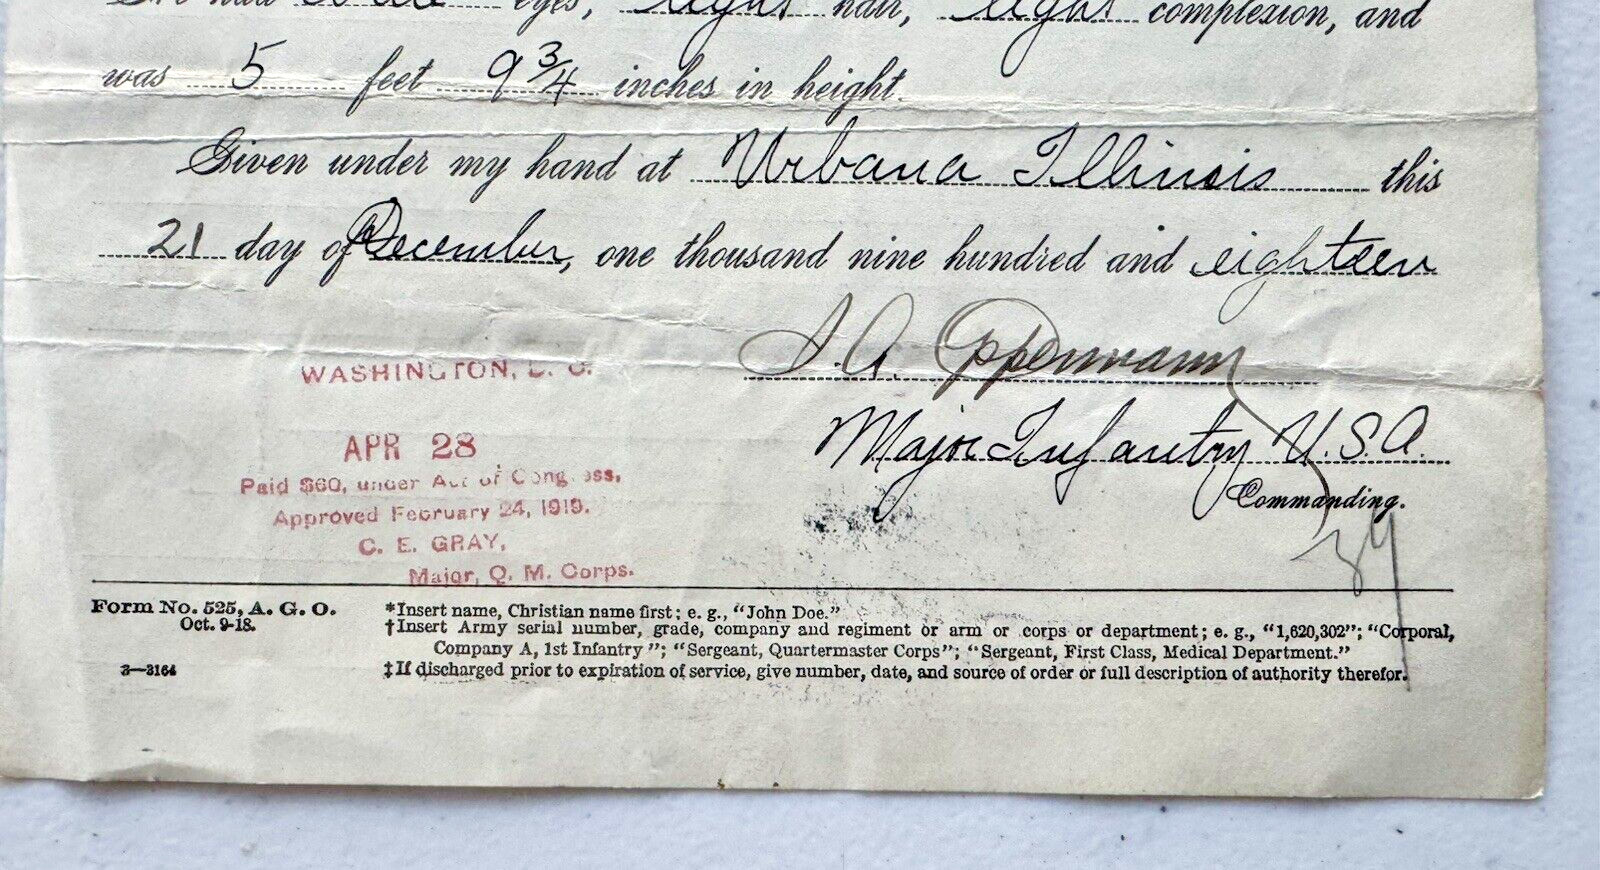 had eyes, light hair, light complexion, and
was 5 feet 9 3/4 inches in height.
Given under my hand at Urbana Illinois this
21 day of December, one thousand nine hundred and eighteen
Oppermann
Major Infantry U.S.A.
Commanding.
39
WASHINGTON, D. C.
APR 28
Paid $60, under Act of Congress,
Approved February 24, 1919.
C. E. GRAY,
Major, Q. M. Corps.
Form No. 525, A. G. O.
Oct. 9-18.
3—3164
*Insert name, Christian name first; e. g., “John Doe.”
†Insert Army serial number, grade, company and regiment or arm or corps or department; e. g., “1,620,302”; “Corporal,
Company A, 1st Infantry”; “Sergeant, Quartermaster Corps”; “Sergeant, First Class, Medical Department.”
‡If discharged prior to expiration of service, give number, date, and source of order or full description of authority therefor.